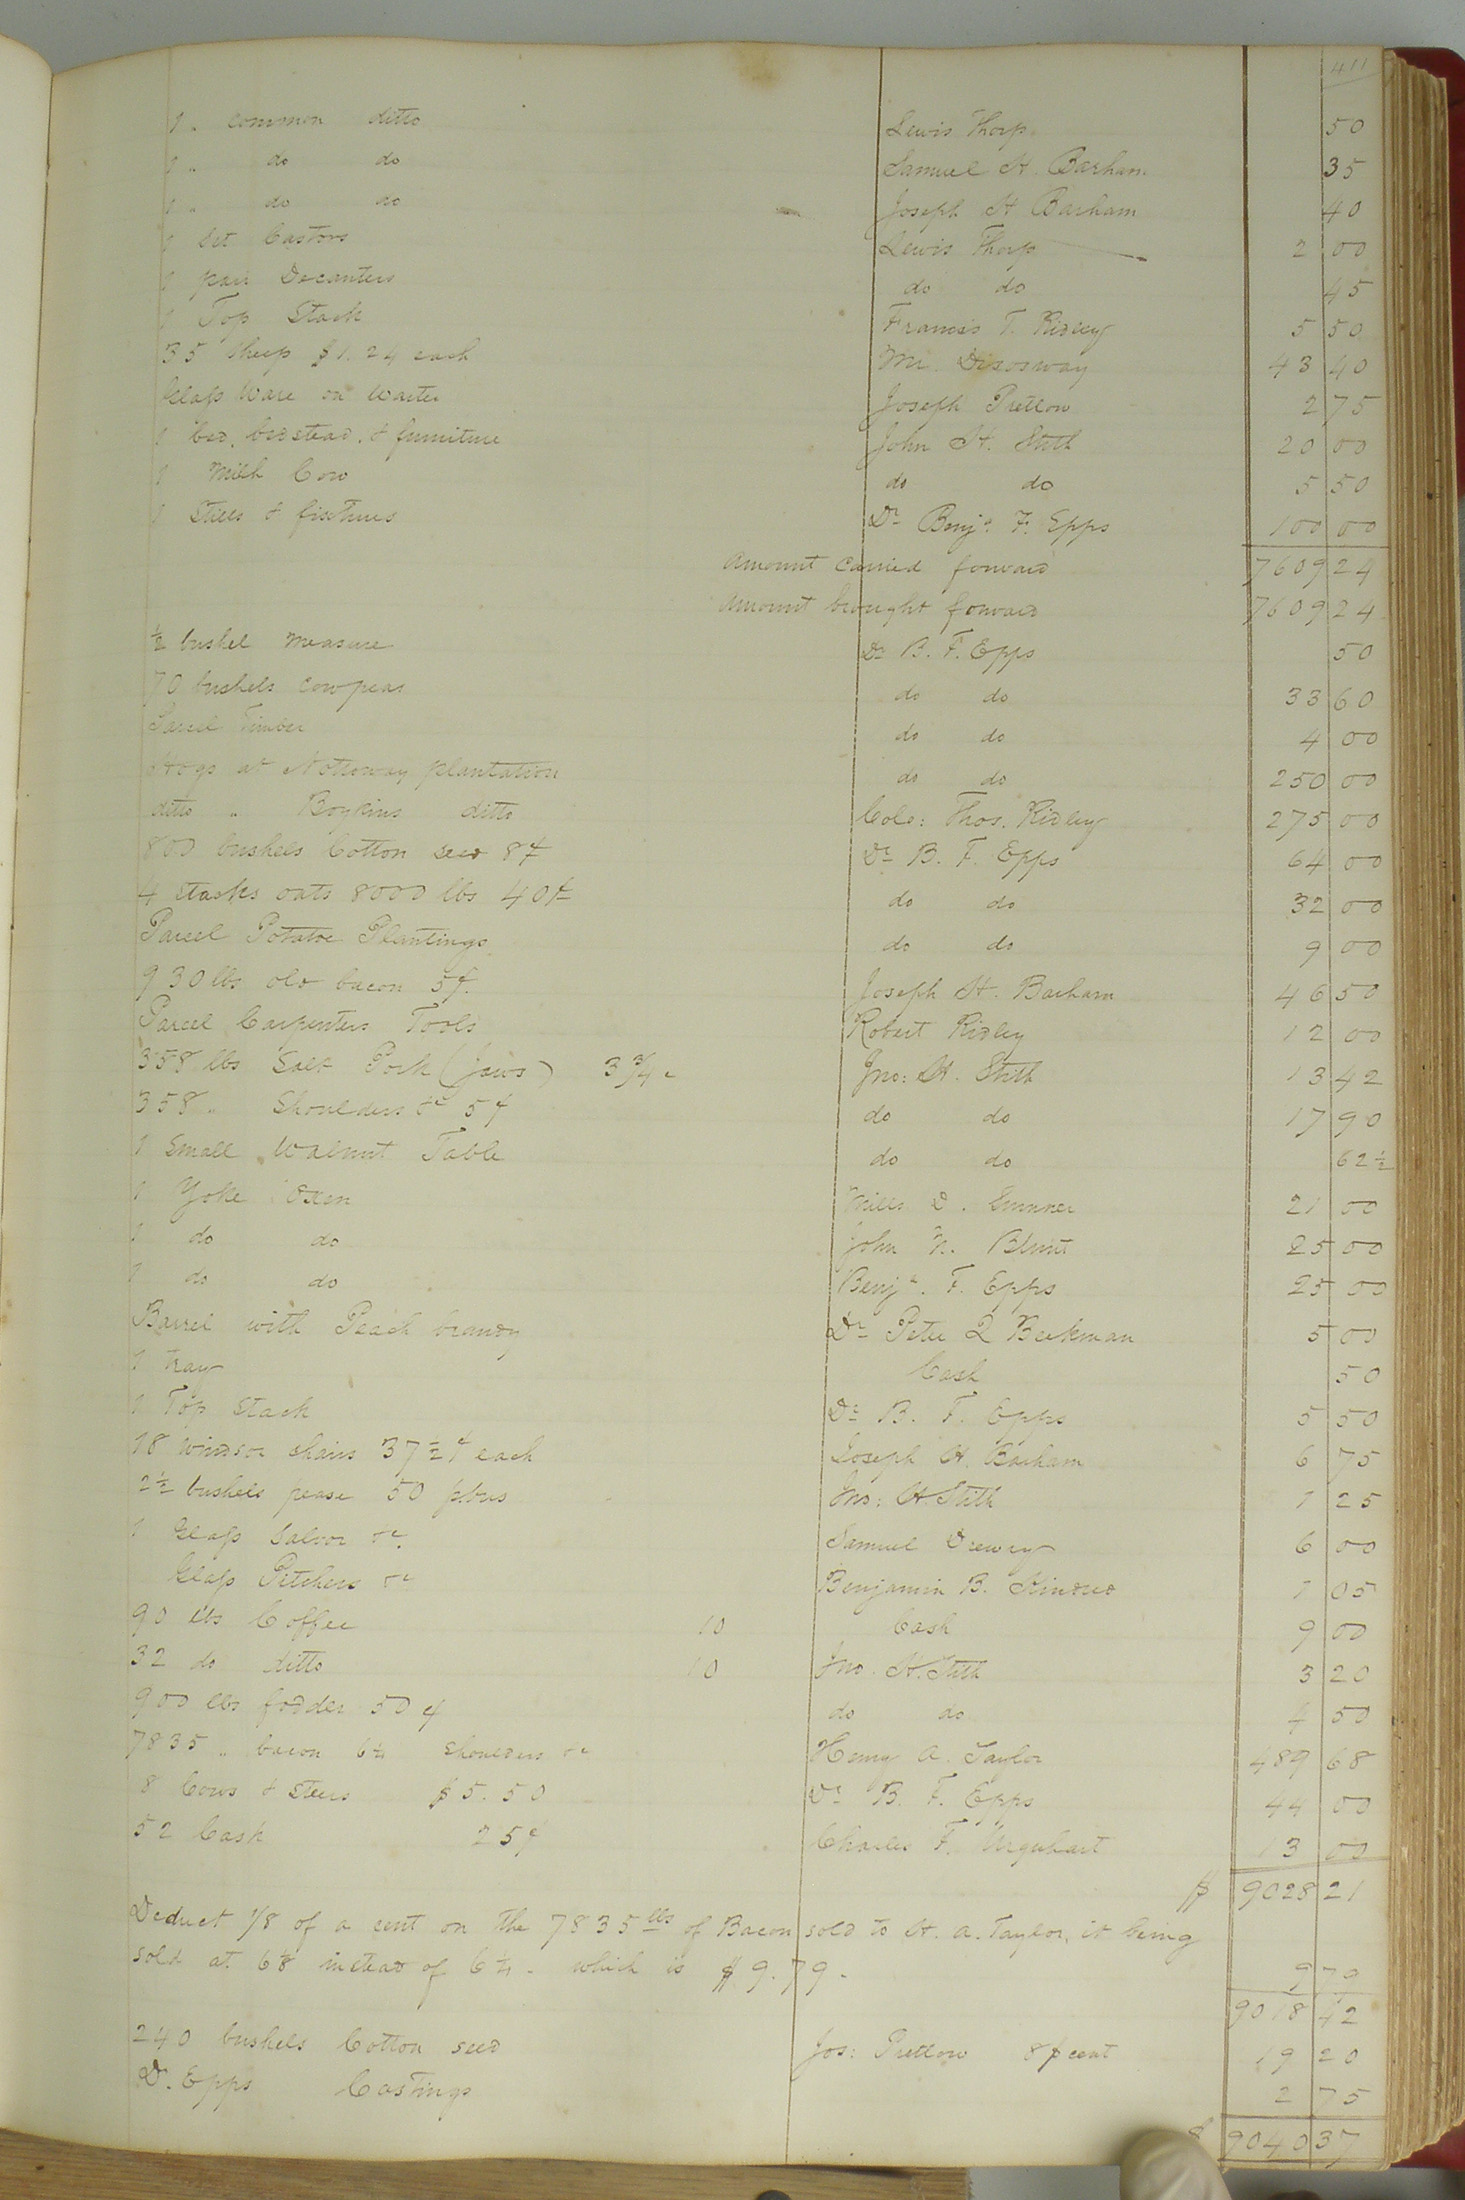 411
1 " common ditto Lewis Thorp 50
1 " do do Samuel H. Barham 35
1 " do do Joseph H Barham 40
1 Set Castors Lewis Thorp 2 00
1 pair Decanters do do 45
1 Top Stack Francis T. Ridley 5 50
35 Sheep $1.24 each Mr. Disosway 43 40
Glass Ware on Waiter Joseph Pretlow 2 75
1 bed, bedstead, & furniture John H. Stith 20 00
1 Milk Cow do do 5 50
1 Stills & fixtures Dr Benja. F. Epps 100 00
Amount carried forward 7609 24
Amount brought forward 7609 24
½ bushel measure Dr B. F. Epps 50
70 bushels cowpeas do do 33 60
Parcel Timber do do 4 00
Hogs at Nottoway plantation do do 250 00
ditto " Boykins ditto Colo: Thos. Ridley 275 00
800 bushels Cotton seed 8¢ Dr B. F. Epps 64 00
4 stacks oats 8000 lbs 40¢ do do 32 00
Parcel Potatoe Plantings do do 9 00
930 lbs old bacon 5¢ Joseph H. Barham 46 50
Parcel Carpenters Tools Robert Ridley 12 00
358 lbs Salt Pork (Jaws) 3¾ c Jno: H. Stith 13 42
358 " Shoulders &c 5¢ do do 17 90
1 Small Walnut Table do do 62½
1 Yoke Oxen Mills D. 21 00
1 do do John N. Blunt 25 00
1 do do Benja. F. Epps 25 00
Barrel with Peach brandy Dr Peter Q Beekman 5 00
1 tray Cash 50
1 Top Stack Dr B. F. Epps 5 50
18 Windsor chairs 37½¢ each Joseph H. Barham 6 75
2½ bushels pease 50 p bus Jno: H. Stith 1 25
1 Glass Salvor &c. Samuel Drewry 6 00
Glass Pitchers &c Benjamin B. Kindred 1 05
90 lbs Coffee 10 Cash 9 00
32 do ditto 10 Jno. H. Stith 3 20
900 lbs fodder 50¢ do do 4 50
7835 " bacon 6¼ Shoulders &c Henry A. Taylor 489 68
8 Cows & Steers $5.50 Dr B. F. Epps 44 00
52 Cask 25¢ Charles F. Urquhart 13 00
$ 9028 21
Deduct 1/8 of a cent on the 7835 lbs of Bacon sold to H. A. Taylor, it being
sold at 6⅛ instead of 6¼ - which is $9.79 - 9 79
9018 42
240 bushels Cotton seed Jos: Pretlow 8 p cent 19 20
D. Epps Castings 2 75
$ 9040 37